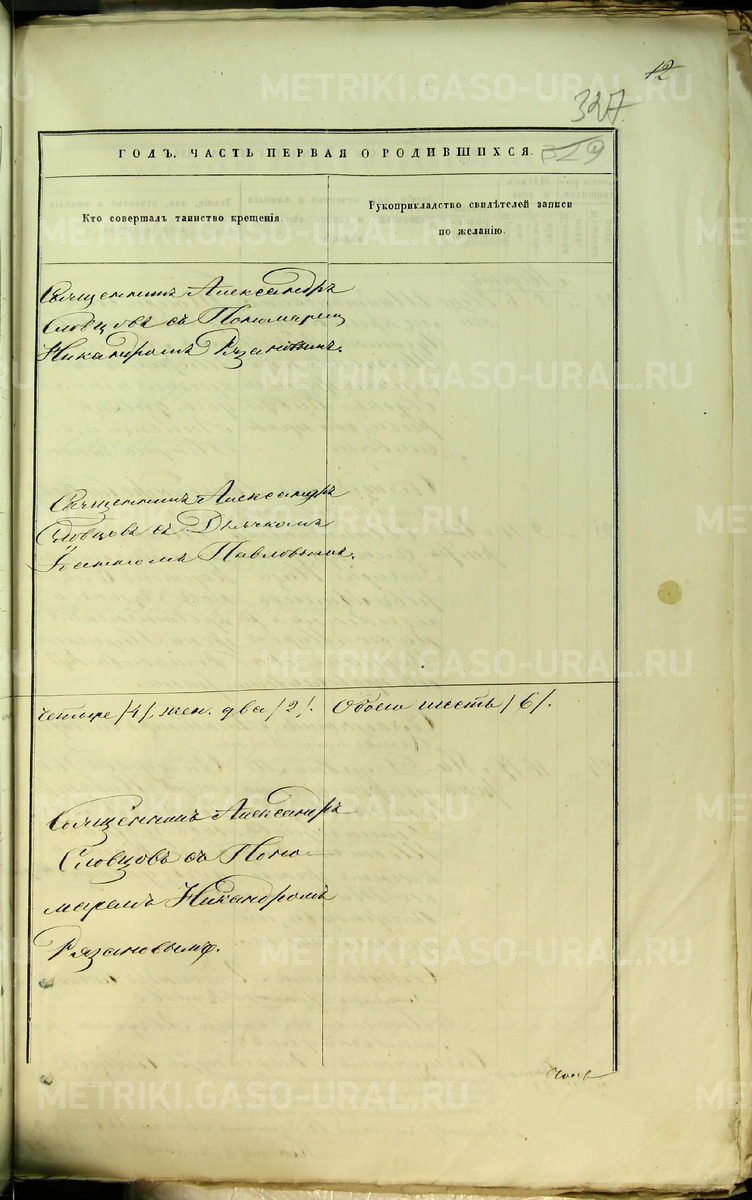 12
327.
329
ГОДЪ, ЧАСТЬ ПЕРВАЯ О РОДИВШИХСЯ.
Кто совершалъ таинство крещенія.
Рукоприкладство свидѣтелей записи
по желанію.
Священникъ Александръ
Словцовъ съ Пономаремъ
Никандромъ Рязановымъ.
Священникъ Александръ
Словцовъ съ Дьячкомъ
Павловымъ.
Четыре /4/, жен. два /2/. Обоего шесть /6/.
Священникъ Александръ
Словцовъ съ Поно-
маремъ Никандромъ
Рязановымъ.
METRIKI.GASO-URAL.RU